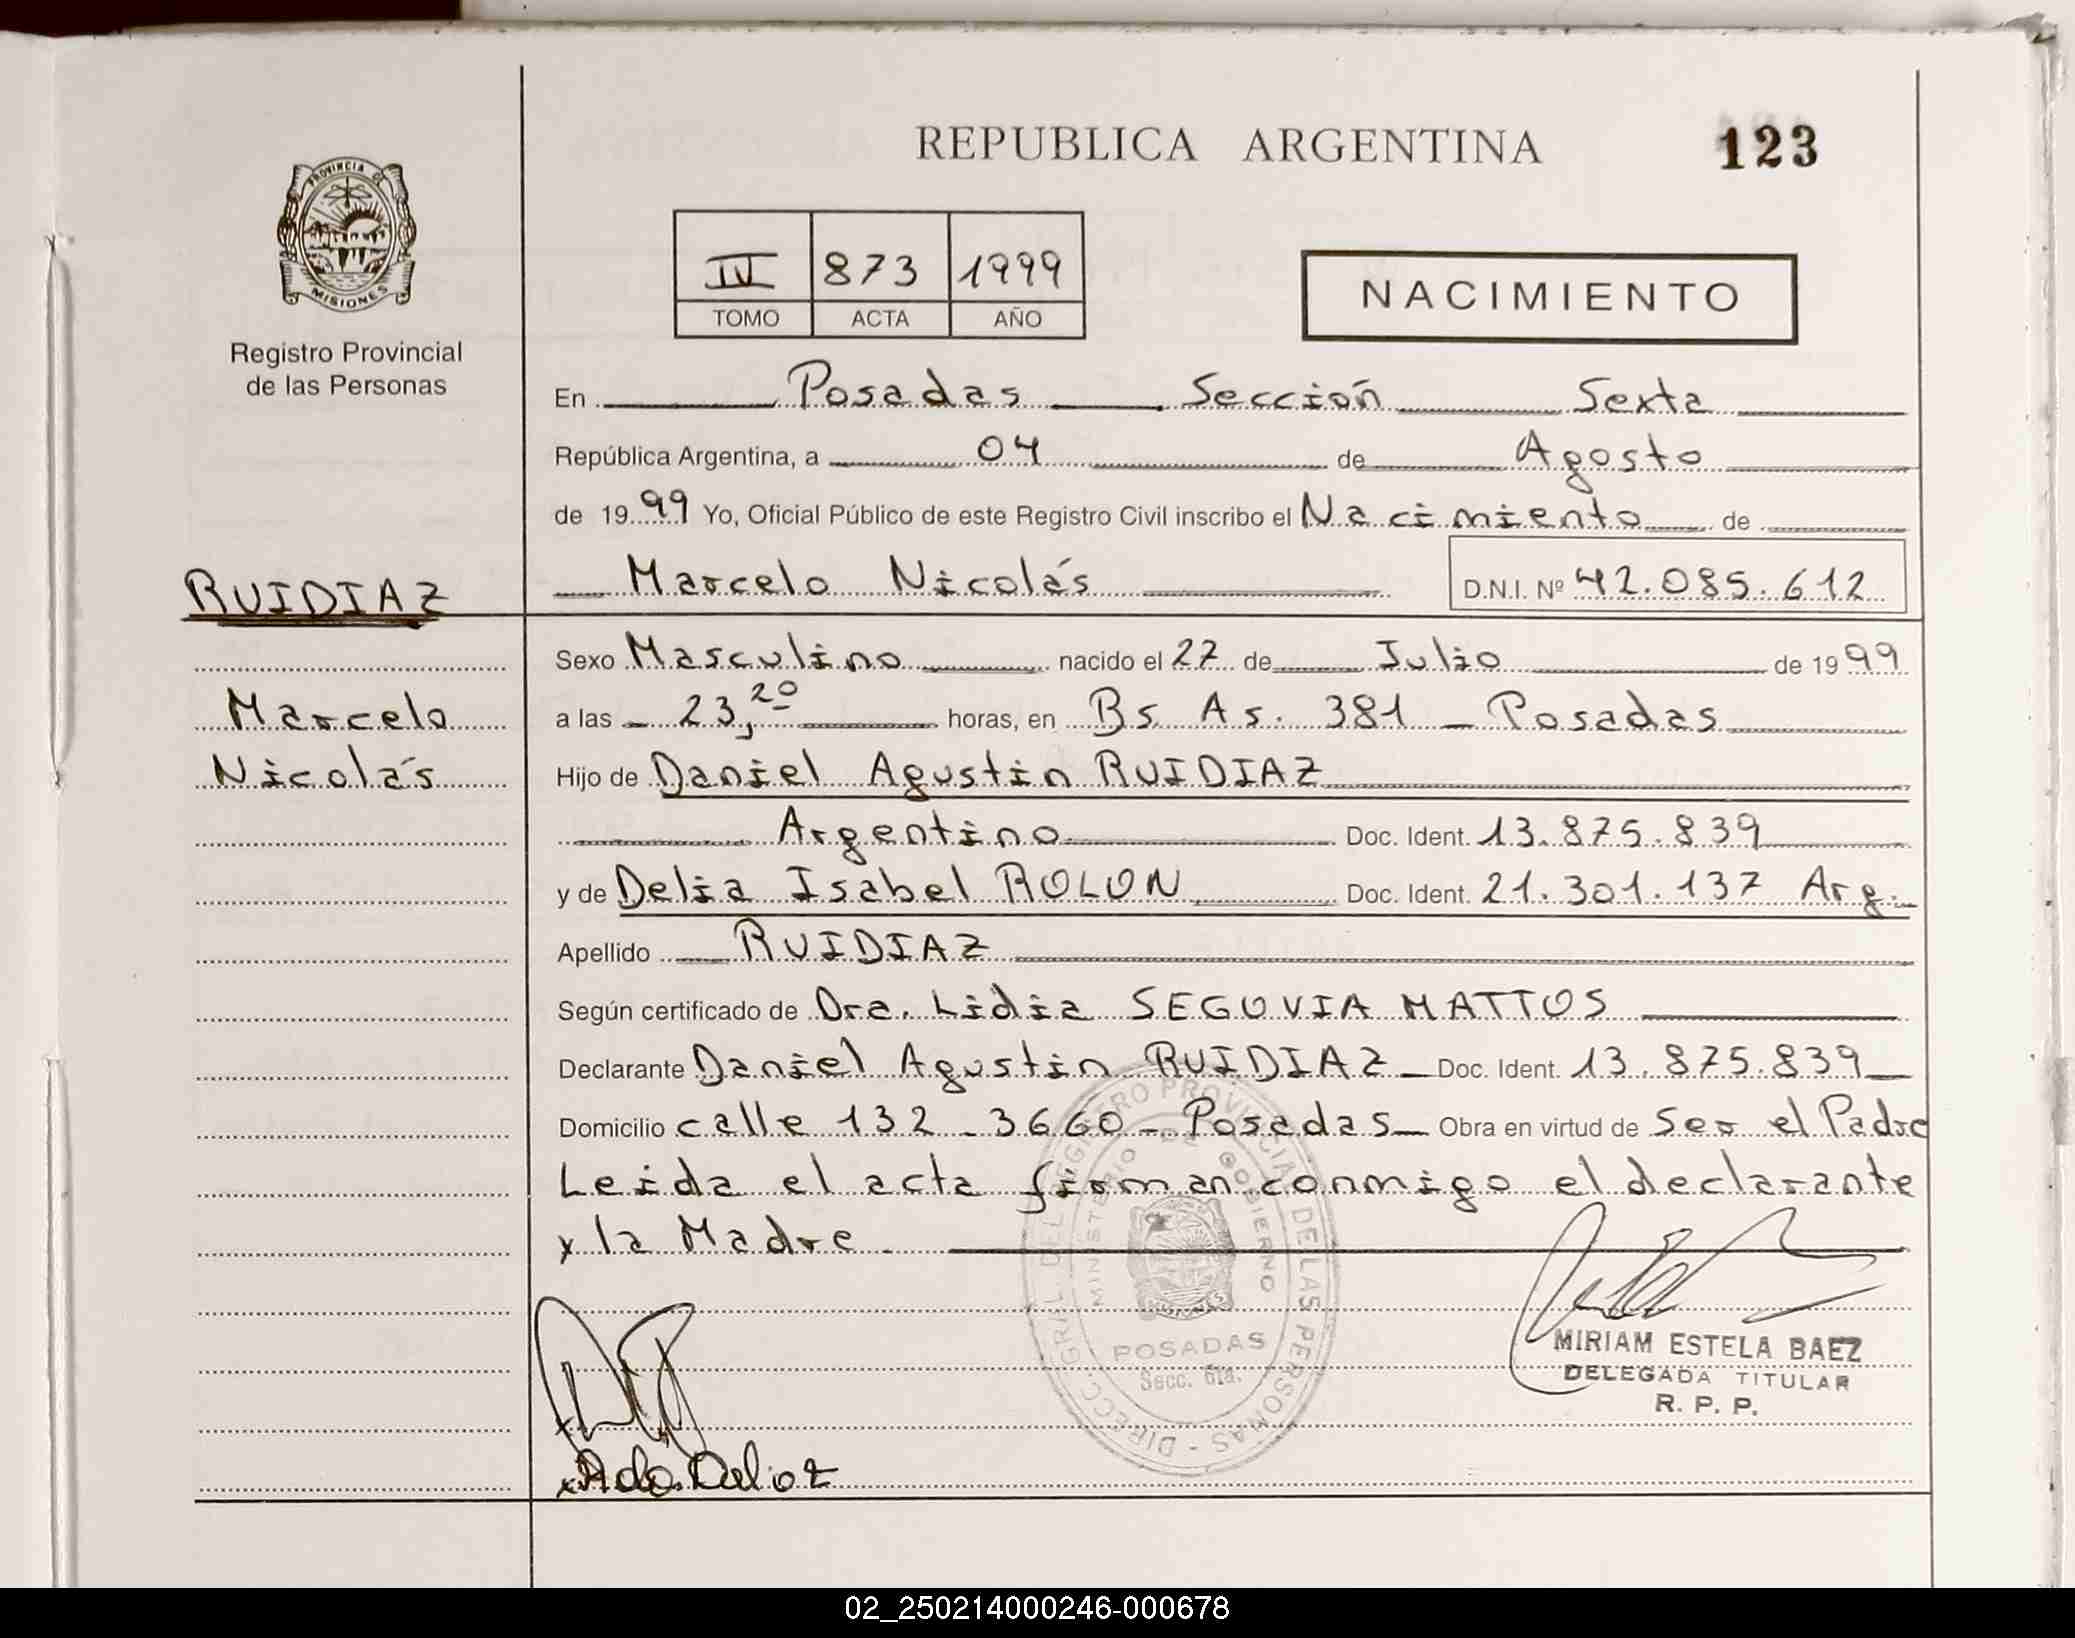 REPUBLICA ARGENTINA
123
PROVINCIA DE
MISIONES
Registro Provincial
de las Personas
IV 873 1999
TOMO ACTA AÑO
NACIMIENTO
En Posadas Sección Sexta
República Argentina, a 04 de Agosto
de 1999 Yo, Oficial Público de este Registro Civil inscribo el Nacimiento de
Marcelo Nicolás D.N.I. Nº 42.085.612
RUIDIAZ
Marcelo
Nicolás
Sexo Masculino nacido el 27 de Julio de 1999
a las 23,20 horas, en Bs As. 381 - Posadas
Hijo de Daniel Agustin RUIDIAZ
Argentino Doc. Ident. 13.875.839
y de Delia Isabel ROLON Doc. Ident. 21.301.137 Arg.
Apellido RUIDIAZ
Según certificado de Dra. Lidia SEGOVIA MATTOS
Declarante Daniel Agustin RUIDIAZ Doc. Ident. 13.875.839
Domicilio calle 132 - 3660 - Posadas Obra en virtud de Ser el Padre
Leida el acta firman conmigo el declarante
y la Madre
DIRECC. GRAL. DEL REGISTRO PROVINCIAL DE LAS PERSONAS
MINISTERIO DE GOBIERNO
MISIONES
POSADAS
Secc. 6ta.
MIRIAM ESTELA BAEZ
DELEGADA TITULAR
R. P. P.
02_250214000246-000678